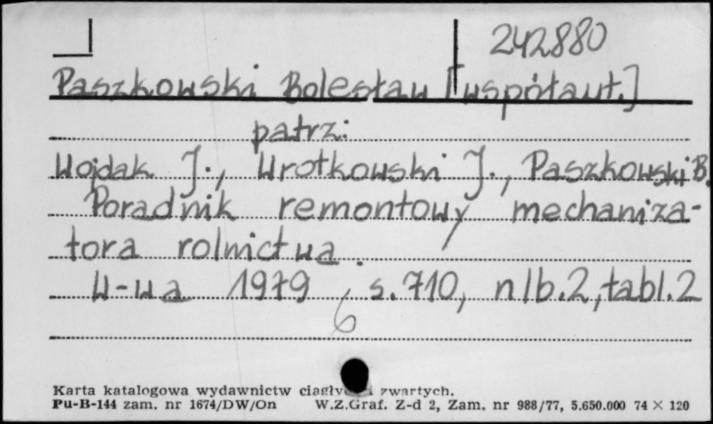 242880
Paszkowski Bolesław [współaut.]
patrz:
Wojdak J., Wrotkowski J., Paszkowski B.
Poradnik remontowy mechaniza-
tora rolnictwa.
W-wa 1979, s.710, nlb.2, tabl.2
6
Karta katalogowa wydawnictw zwartych.
Pu-B-144 zam. nr 1674/DW/On W.Z.Graf. Z-d 2, Zam. nr 988/77, 5.650.000 74 × 120